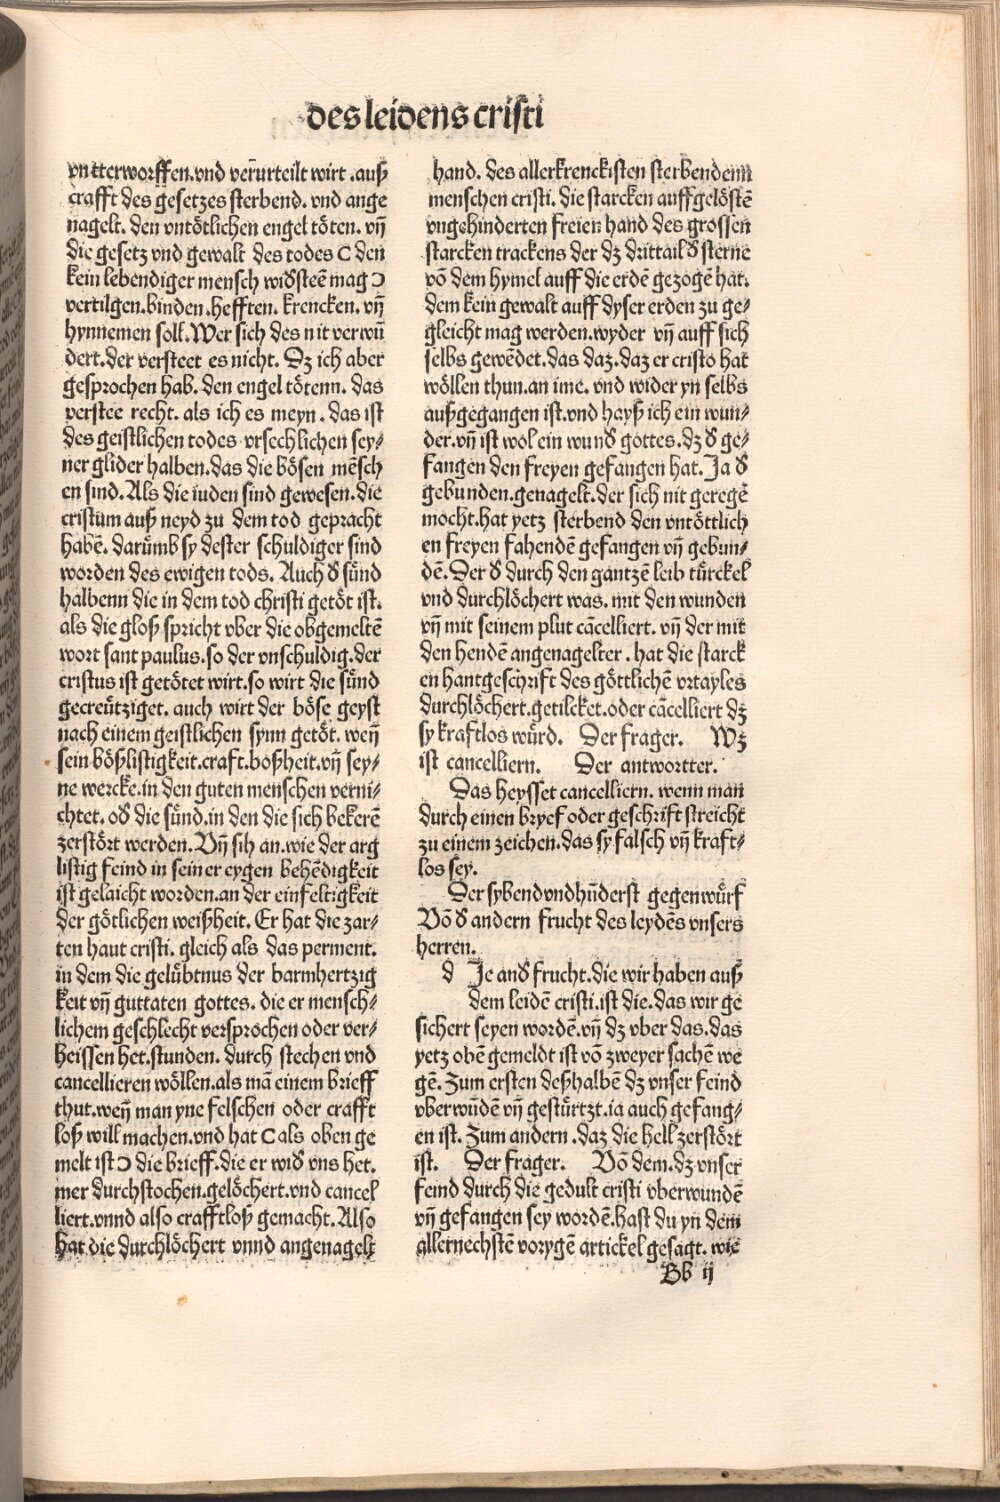 des leidens cristi
vntterworffen.vnd verurteilt wirt .auß
crafft des gesetzes sterbend. vnd ange
nagelt. den vntötlichen engel töten. vn̄
die gesetz vnd gewalt des todes (den
kein lebendiger mensch wid̕steē mag)
vertilgen.binden.hefften. krencken. vn̄
hynnemen soll. Wer sich des nit verwū
dert.der versteet es nicht. Dz ich aber
gesprochen hab. den engel tötenn. das
verstee recht. als ich es meyn. das ist
des geistlichen todes vrsechlichen sey⸗
ner glider halben.das die bösen mēsch
en sind. Als die iuden sind gewesen. die
cristum auß neyd zu dem tod gepracht
habē. darūmb sy dester schuldiger sind
worden des ewigen tods. Auch d̕ sünd
halbenn die in dem tod christi getöt ist.
als die gloß spricht vber die obgemeltē
wort sant paulus.so der vnschuldig.der
cristus ist getötet wirt.so wirt die sünd
gecreütziget. auch wirt der böse geyst
nach einem geistlichen synn getöt. wen̄
sein bößlistigkeit.craft.boßheit.vn̄ sey⸗
ne wercke.in den guten menschen verni⸗
chtet. od̕ die sünd.in den die sich bekerē
zerstört werden. Vn̄ sih an.wie der arg
listig feind in seiner eygen behēdigkeit
ist gelaicht worden.an der einfeltigkeit
der götlichen weißheit. Er hat die zar⸗
ten haut cristi. gleich als das perment.
in dem die gelübtnus der barmhertzig
keit vn̄ guttaten gottes. die er mensch⸗
lichem geschlecht versprochen oder ver⸗
heissen het.stunden. durch stechen vnd
cancellieren wöllen.als mā einem brieff
thut.wen̄ man yne felschen oder crafft
loß will machen.vnd hat (als oben ge
melt ist) die brieff.die er wid̕ vns het.
mer durchstochen.gelöchert.vnd cancel
liert.vnnd also crafftloß gemacht. Also
hat die durchlöchert vnnd angenagelt
hand. des allerkrenckisten sterbendenn
menschen cristi. die starcken auffgelöstē
vngehinderten freien hand des grossen
starcken trackens der dz drittail d̕ sterne
vō dem hymel auff die erdē gezogē hat.
dem kein gewalt auff dyser erden zu ge⸗
gleicht mag werden.wyder vn̄ auff sich
selbs gewēdet.das daz.daz er cristo hat
wöllen thun.an ime. vnd wider yn selbs
außgegangen ist.vnd hayß ich ein wun⸗
der.vn̄ ist wol ein wund̕ gottes.dz d̕ ge⸗
fangen den freyen gefangen hat. Ja d̕
gebunden.genagelt.der sich nit geregē
mocht.hat yetz sterbend den vntöttlich
en freyen fahendē gefangen vn̄ gebun⸗
dē. Der d̕ durch den gantzē leib türckel
vnd durchlöchert was. mit den wunden
vn̄ mit seinem plut cācelliert. vn̄ der mit
den hendē angenagelter. hat die starck
en hantgeschrift des göttlichē vrtayles
durchlöchert.getilcket.oder cācelliert dz
sy kraftlos würd. Der frager. Wz
ist cancelliern. Der antwortter.
Das heysset cancelliern. wenn man
durch einen bryef oder geschrift streicht
zu einem zeichen.das sy falsch vn̄ kraft⸗
los sey.
Der sybendvndhūderst gegenwürf
Vō d̕ andern frucht des leydēs vnsers
herren.
d Je and̕ frucht.die wir haben auß
dem leidē cristi.ist die.das wir ge
sichert seyen wordē.vn̄ dz vber das.das
yetz obē gemeldt ist vō zweyer sachē we
gē. Zum ersten deßhalbē dz vnser feind
vberwūdē vn̄ gestürtzt.ia auch gefang⸗
en ist. Zum andern .daz die hell zerstört
ist. Der frager. Vō dem.dz vnser
feind durch die gedult cristi vberwundē
vn̄ gefangen sey wordē.hast du yn dem
allernechstē vorygē artickel gesagt. wie
Bb ij